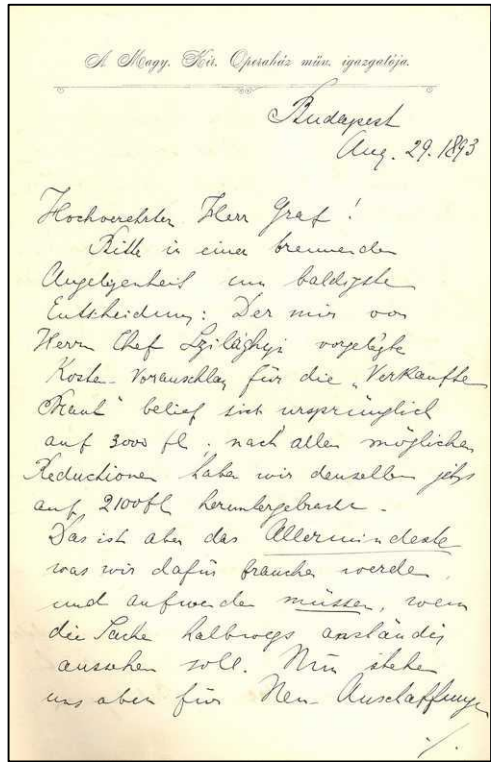 A Magy. Kir. Operaház műv. igazgatója.
Budapest
Aug. 29. 1893
Hochverehrter Herr Graf!
Bitte in einer brennenden
Angelegenheit um baldigste
Entscheidung: Der mir von
Herrn Chef Szilághyi vorgelegte
Kosten-Voranschlag für die „Verkaufte
Braut" belief sich ursprünglich
auf 3000 fl. nach allen möglichen
Reductionen haben wir denselben jetzt
auf 2100 fl heruntergebracht.
Das ist aber das Allermindeste
was wir dafür brauchen werden,
und aufwenden müssen, wenn
die Sache halbwegs anständig
aussehen soll. Nun stehen
uns aber für Neu-Anschaffungen
./.